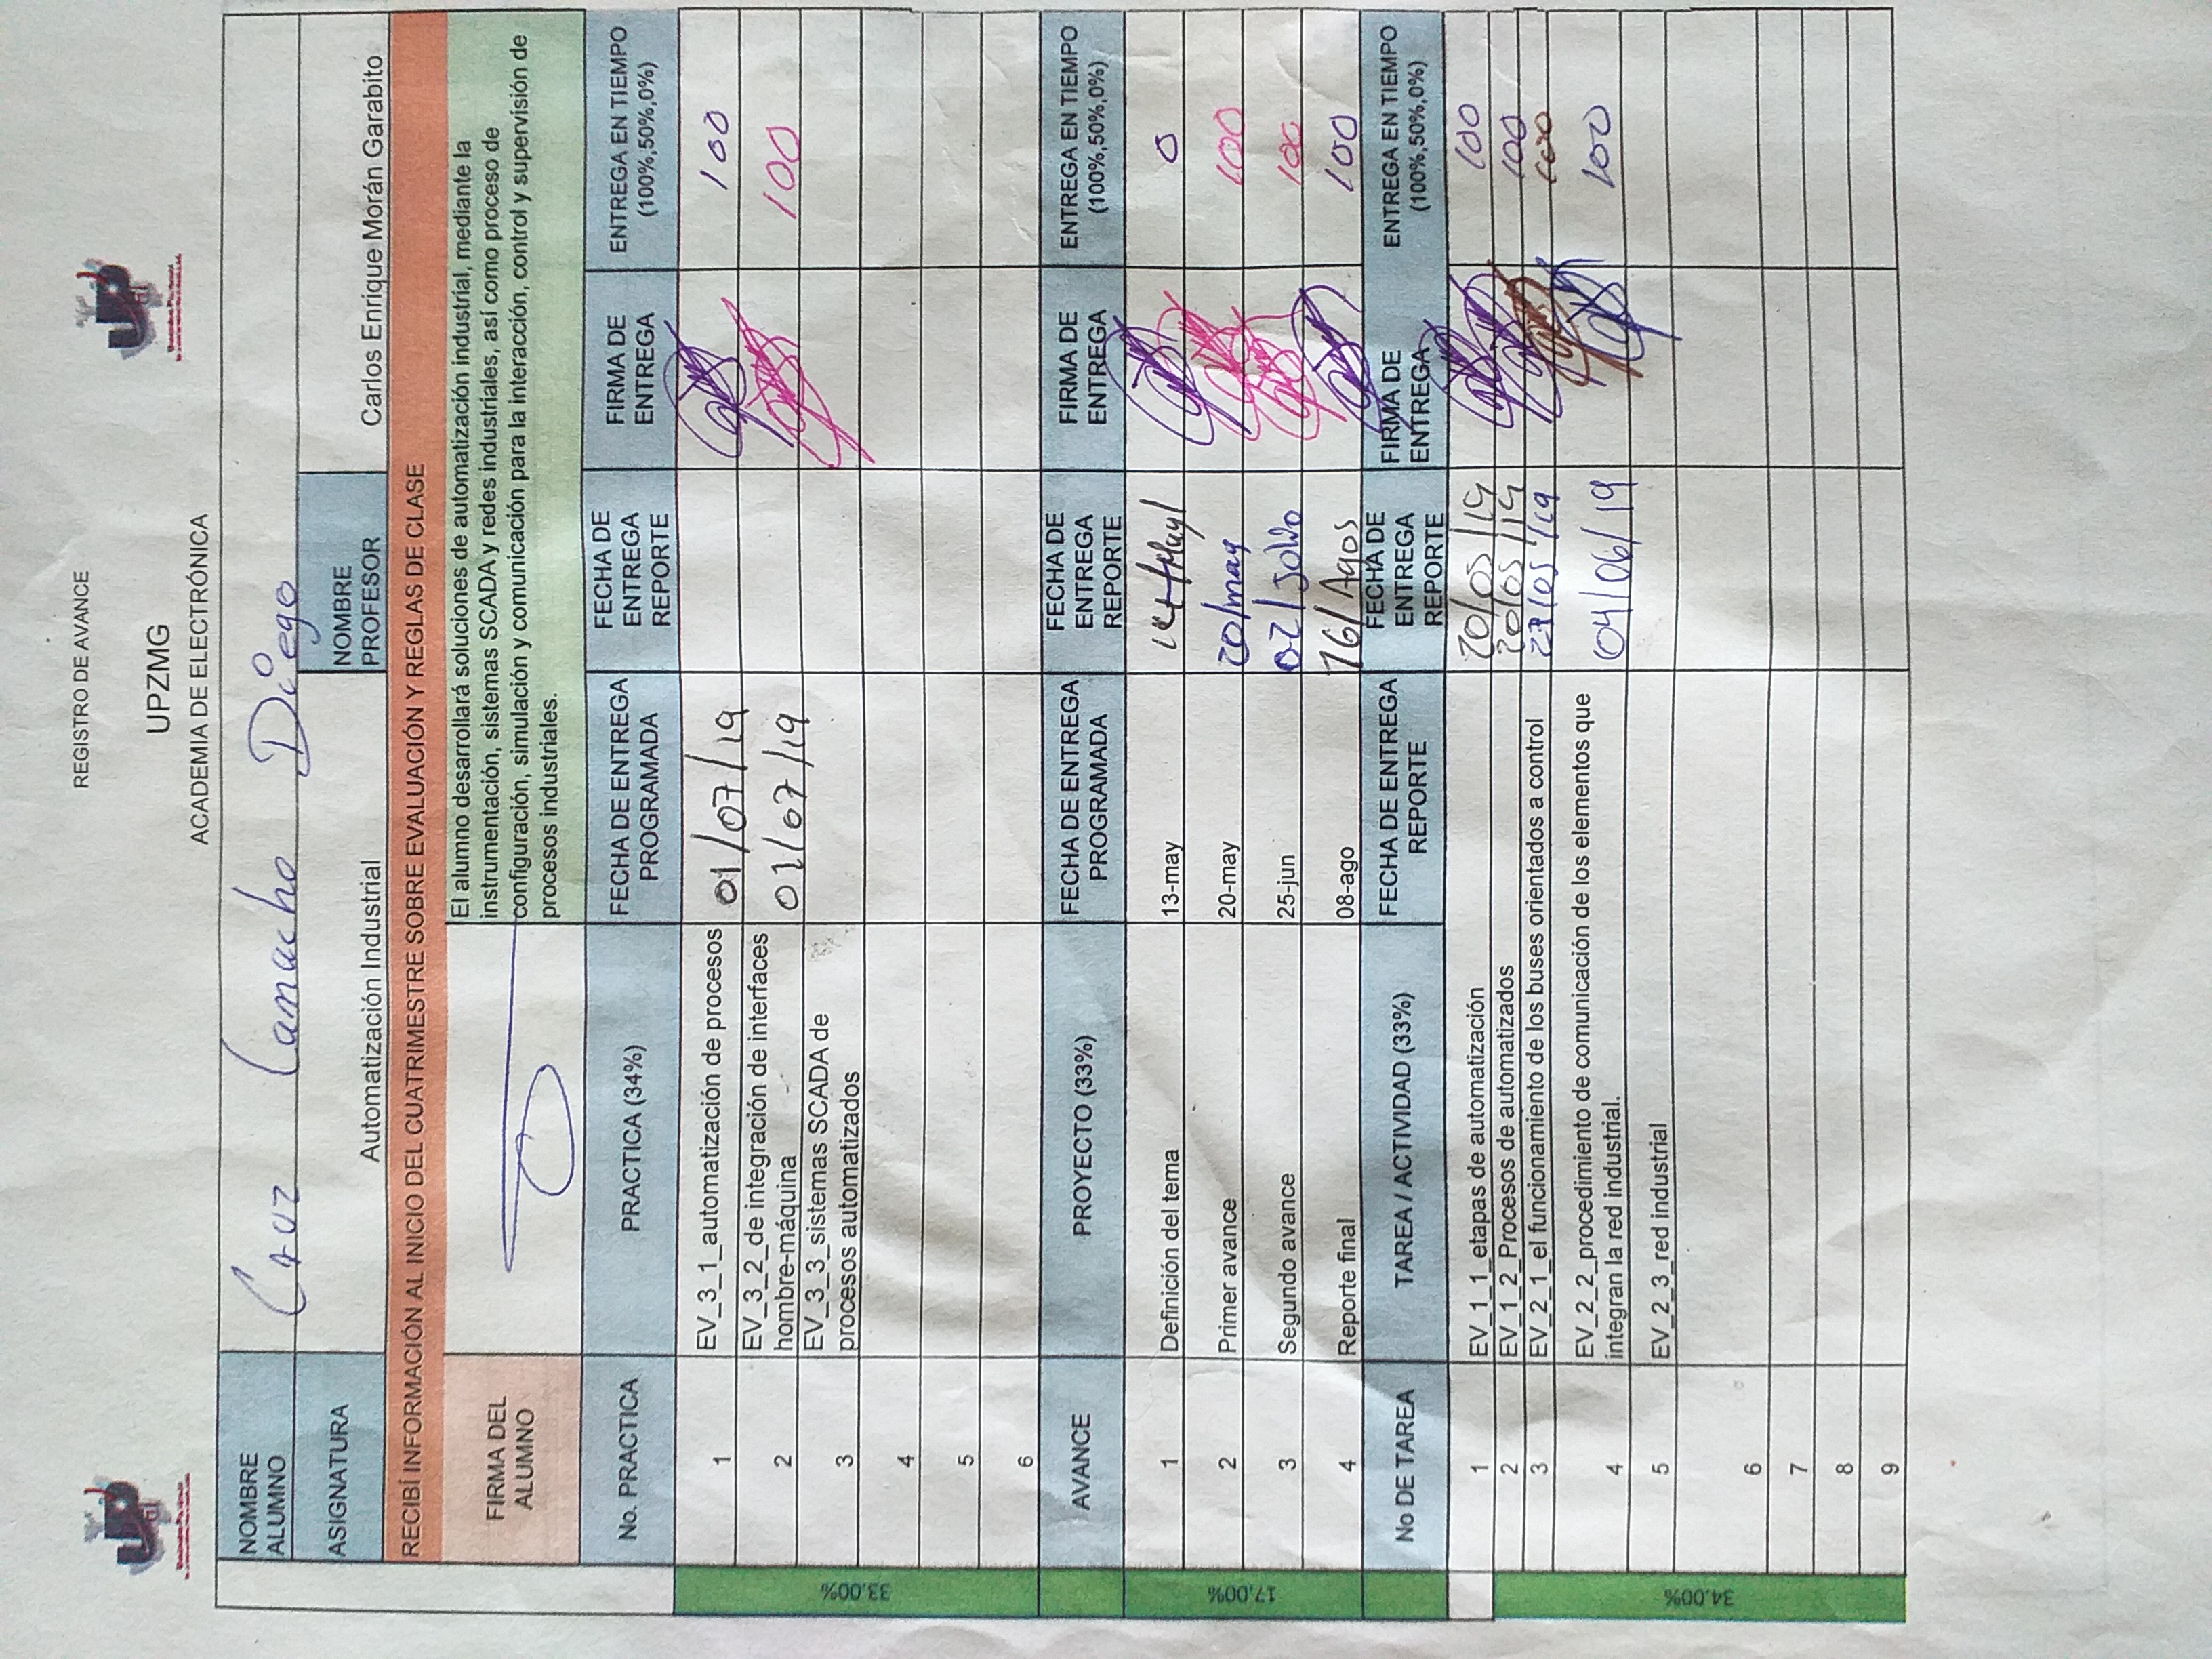 REGISTRO DE AVANCE
UPZMG
ACADEMIA DE ELECTRÓNICA
NOMBRE
ALUMNO
Cruz Camacho Diego
ASIGNATURA
Automatización Industrial
NOMBRE
PROFESOR
Carlos Enrique Morán Garabito
RECIBÍ INFORMACIÓN AL INICIO DEL CUATRIMESTRE SOBRE EVALUACIÓN Y REGLAS DE CLASE
FIRMA DEL
ALUMNO
El alumno desarrollará soluciones de automatización industrial, mediante la
instrumentación, sistemas SCADA y redes industriales, así como proceso de
configuración, simulación y comunicación para la interacción, control y supervisión de
procesos industriales.
No. PRACTICA
PRACTICA (34%)
FECHA DE ENTREGA
PROGRAMADA
FECHA DE
ENTREGA
REPORTE
FIRMA DE
ENTREGA
ENTREGA EN TIEMPO
(100%,50%,0%)
33.00%
1 EV_3_1_automatización de procesos 01/07/19 100
2 EV_3_2_de integración de interfaces
hombre-máquina 01/07/19 100
3 EV_3_3_sistemas SCADA de
procesos automatizados
4
5
6
AVANCE
PROYECTO (33%)
FECHA DE ENTREGA
PROGRAMADA
FECHA DE
ENTREGA
REPORTE
FIRMA DE
ENTREGA
ENTREGA EN TIEMPO
(100%,50%,0%)
17.00%
1 Definición del tema 13-may 0
2 Primer avance 20-may 20/may 100
3 Segundo avance 25-jun 02/Julio 100
4 Reporte final 08-ago 16/Agos 100
No DE TAREA
TAREA / ACTIVIDAD (33%)
FECHA DE ENTREGA
REPORTE
FECHA DE
ENTREGA
REPORTE
FIRMA DE
ENTREGA
ENTREGA EN TIEMPO
(100%,50%,0%)
34.00%
1 EV_1_1_etapas de automatización 20/05/19 100
2 EV_1_2_Procesos de automatizados 20/05/19 100
3 EV_2_1_el funcionamiento de los buses orientados a control 27/05/19 100
4 EV_2_2_procedimiento de comunicación de los elementos que
integran la red industrial. 04/06/19 100
5 EV_2_3_red industrial
6
7
8
9